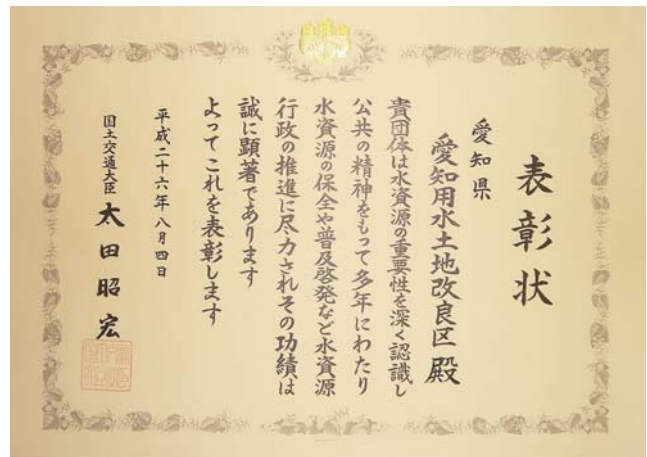 表彰状
愛知県
愛知用水土地改良区 殿
貴団体は水資源の重要性を深く認識し
公共の精神をもって多年にわたり
水資源の保全や普及啓発など水資源
行政の推進に尽力されその功績は
誠に顕著であります
よってこれを表彰します
平成二十六年八月四日
国土交通大臣 太田昭宏